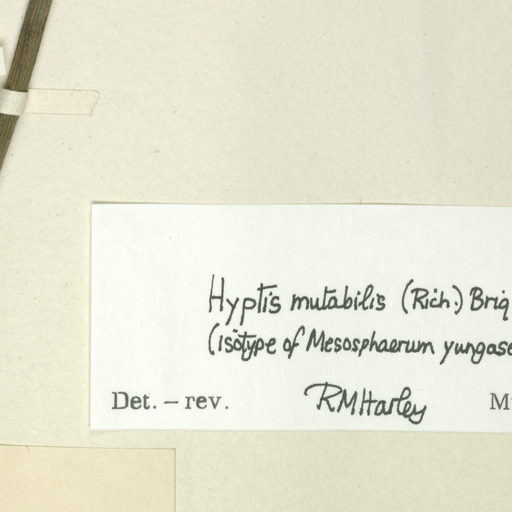 Hyptis mutabilis (Rich.) Briq
(isotype of Mesosphaerum yungase
Det. – rev. RMHarley M